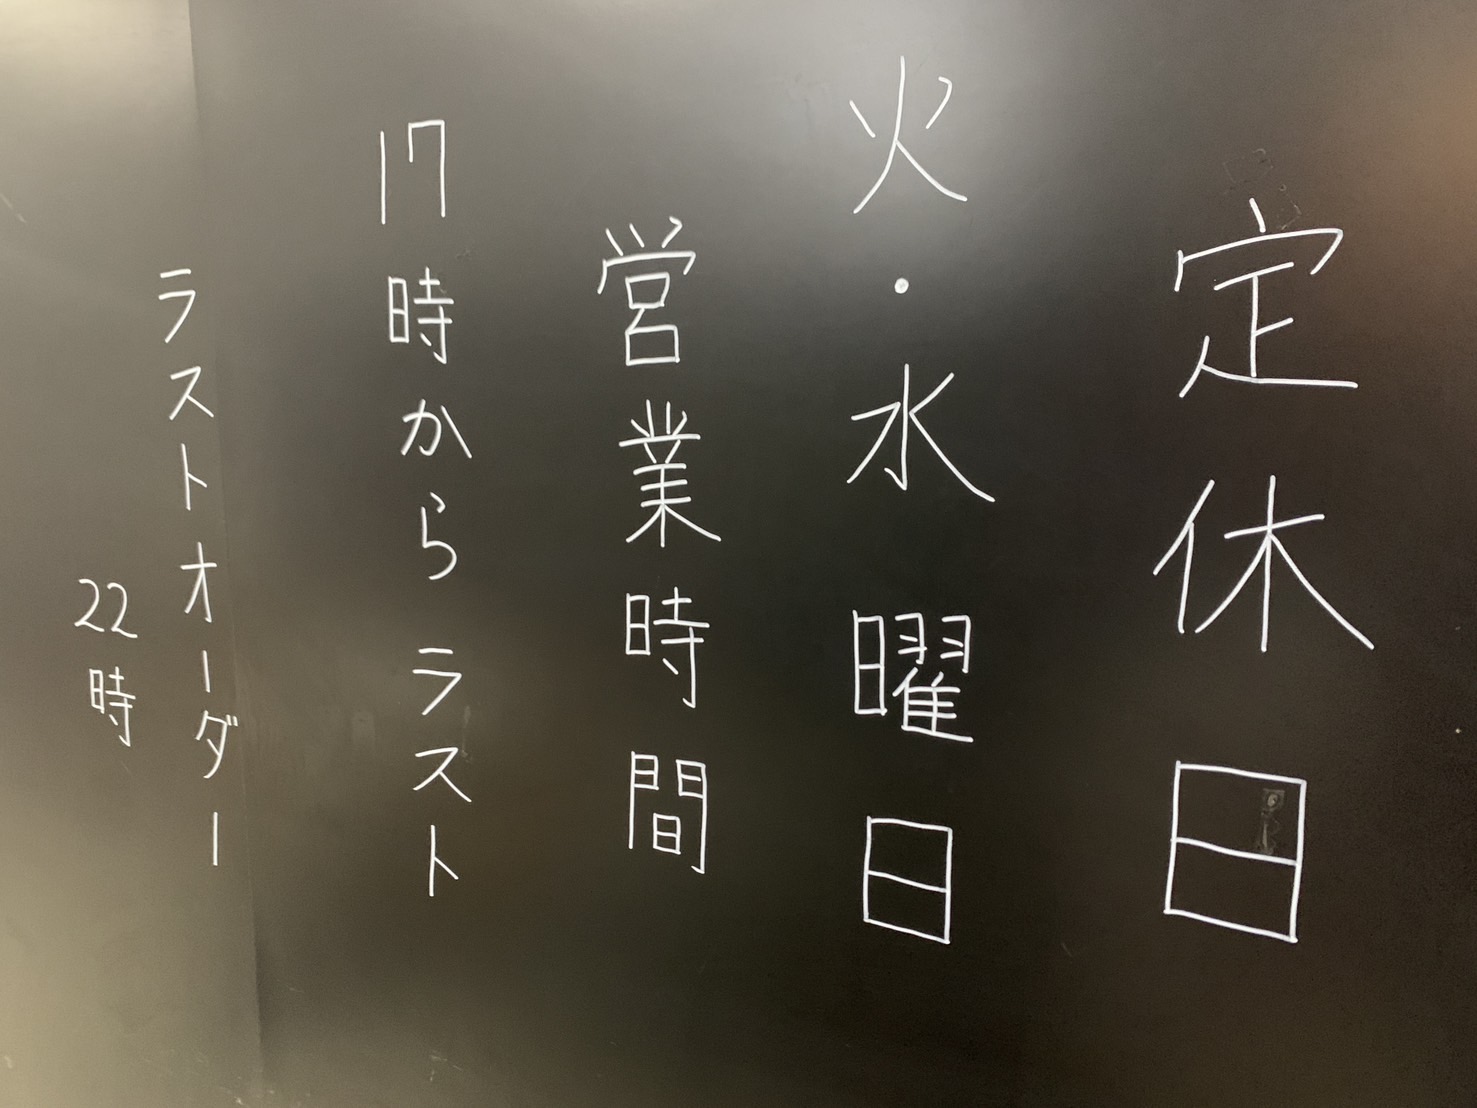 定休日
火・水曜日
営業時間
17時からラスト
ラストオーダー
22時